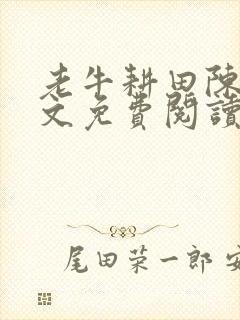 老牛耕田陳
文免費閱讀
尾田荣一郎 安